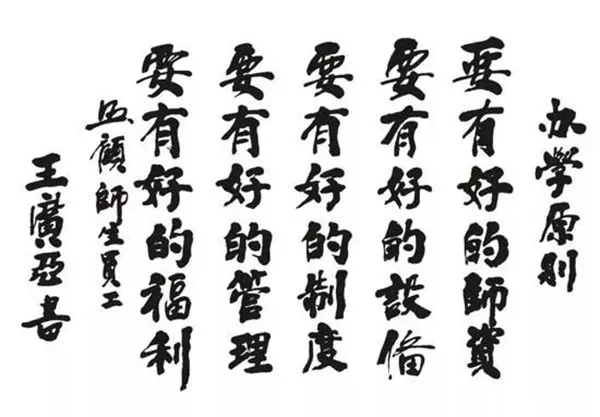 办學原则
要有好的師資
要有好的設俻
要有好的制度
要有好的管理
要有好的福利
照顧師生員工
王廣亞書